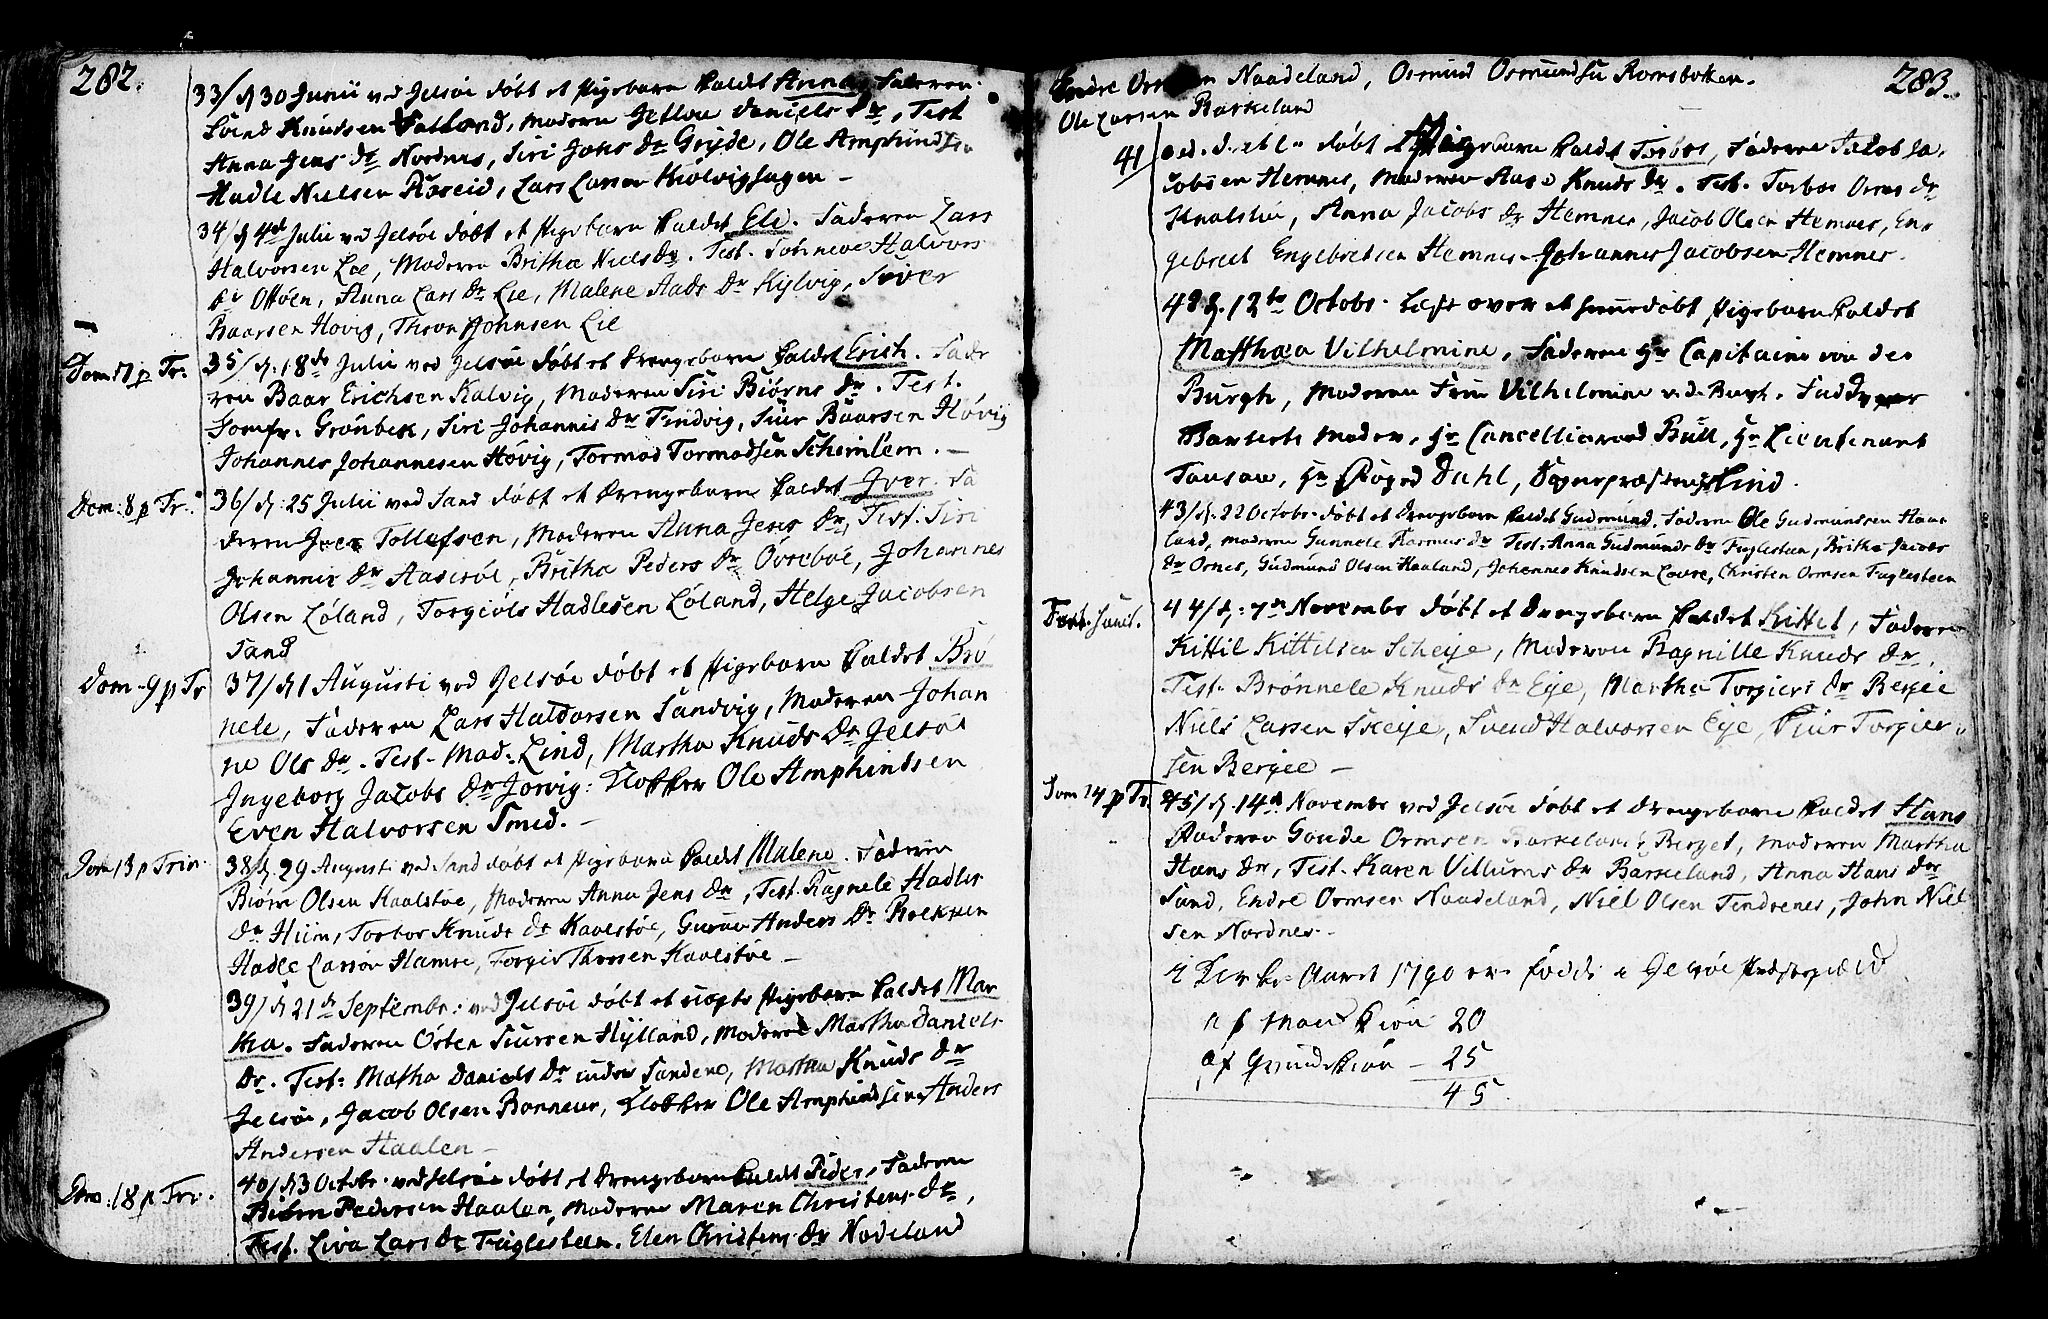 282.
33/ d 30 Junii ved Jelsøe døbt et Pigebarn kaldet Anna, Faderen
Svend Knudsen Vatland, Moderen Jellou Daniels Dr, Test
Anna Jens dr Nordnes, Siri Johs Dr Gryde, Ole Amphindsen
Hadle Nielsen Røseid, Lars Larsen Kiølvighagen –
34/ d 4de Julii ved Jelsøe døbt et Pigebarn kaldet Eli. Faderen Lars
Halvorsen Lee, Moderen Britha Niels Dr. Test. Sønneve Halvors
Dr Ottøen, Anna Lars Dr Lie, Malene Aads Dr Kylvig, Siver
Baarsen Hovig, Thron Johnsen Lie
Dom 7 p Tr.
35/ d. 18de Julii ved Jelsøe døbt et Drengebarn kaldet Erich. Fade
ren Baar Erichsen Kalvig, Moderen Siri Biørns dr. Test.
Jomfr. Grønbek, Siri Johannis Dr Tindvig, Siur Baarsen Høvig
Johannes Johannesen Høvig, Tormod Tormodsen Scheimlem. –
Dom: 8 p Tr.
36/ d: 25 Julii ved Sand døbt et Drengebarn kaldet Iver. Fa
deren Iver Tollefsen, Moderen Anna Jens Dr, Test. Siri
Johannis dr Aaserøe, Britha Peders Dr Øvrebøe, Johannes
Olsen Løland, Torgiøls Hadlesen Løland, Helge Jacobsen
Sand
Dom. 9 p Tr
37/ d 1 Augusti ved Jelsøe døbt et Pigebarn kaldet Brø
nele, Faderen Lars Haldorsen Sandvig, Moderen Johan
ne Ols dr. Test. Mad. Lind, Martha Knuds Dr Jelsøe
Ingeborg Jacobs Dr Jorvig: Klokker Ole Amphindsen
Even Halvorsen Smed. –
Dom 13 p Trin.
38/ d. 29 Augusti ved Sand døbt et Pigebarn kaldet Malene. Faderen
Biørn Olsen Haalstøe, Moderen Anna Jens Dr, Test. Ragnele Hadles
Dr Hiim, Torbor Knuds dr Kavestøe, Guroe Anders Dr
Hadle Larsøn Hamre, Torgier Thorsen Kaalstøe –
39/ d 21de Septembr: ved Jelsøe døbt et uægte Pigebarn kaldet Mar
tha. Faderen Østen Siursen Hylland, Moderen Martha Daniels
Dr. Test: Matha Daniels Dr indre Sandene, Martha Knuds Dr
Jelsøe, Jacob Olsen Bonneur, Klokker Ole Amphindsen, Anders
Andersen Haalen –
Dom: 18 p Trin.
40/ d 3 Octobr. ved Jelsøe døbt et Drengebarn kaldet Peder, Faderen
Biørn Pedersen Haalen, Moderen Maren Christens Dr,
Test. Liva Lars Dr Fuglesteen. Elen Christens Dr Nodeland
283.
Endre Naadeland, Osmund Osmundsen Romsbotten.
Ole Larsen Barkeland
41 døbt et Pigebarn kaldt Torbor, Faderen Jacob Ja
cobsen Hemnes, Moderen Aase Knuds Dr. Test. Torbor Orms dr
Hvalstøe, Anna Jacobs Dr Hemnes, Jacob Olsen Hemnes, En
gebret Engebretsen Hemnes, Johannes Jacobsen Hemnes.
42 d. 12te Octobr. Læst over et hiemmedøbt Pigebarn kaldet
Matthæa Vilhelmine, Faderen Hr Capitaine von der
Burgh, Moderen Frue Vilhelmine v. d. Burgh.
Barnets Moder, Hr Cancellieraad Bull, Hr Lieutenant
Tausan, Hr Foged Dahl, Sognepræsten Lind.
43/ d. 22 Octobr. døbt et Drengebarn kaldet Gudmund. Faderen Ole Gudmundsen Haa
land, Moderen Gunnele Rasmus dr Test. Anna Gudmunds Dr Fuglesteen, Britha Jacobs
dr Ornes, Gudmund Olsen Haaland, Johannes Knudsen Lovre, Christen Ormsen Fuglesteen
Fest. Sanct.
44/ d: 7de Novembr døbt et Drengebarn kaldet Kittel, Faderen
Kittil Kittilsen Scheye, Moderen Ragnille Knuds Dr,
Test. Brønnele Knuds Dr Eye, Martha Torgiers Dr Bergee
Niels Larsen Skeye, Svend Halvorsen Eye, Siur Torgier
sen Bergee –
Dom 24 p Tr.
45/ d. 14de Novembr ved Jelsøe døbt et Drengebarn kaldet Hans
Faderen Goude Ormsen Barkeland Berget, Moderen Martha
Hans Dr, Test. Karen Villums Dr Barkeland, Anna Hans Dr
Sand, Endre Ormsen Naadeland, Niel Olsen Tendrenes, John Niel
sen Nordnes. –
i Kirke Aaret 1790 ere fødde i Jelsøe Præstegield
af Mand Kiøn 20
af Qvinde Kiøn – 25
45